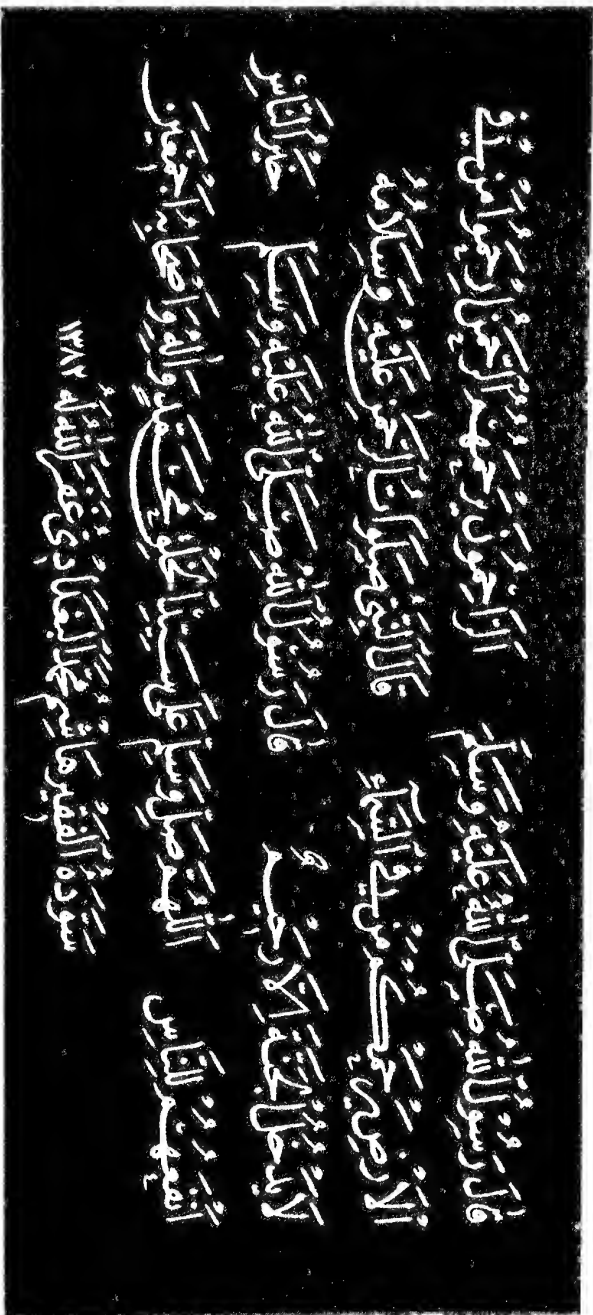 قَالَ رَسُولُ اللهِ صَلَّى اللهُ عَلَيْهِ وَسَلَّمَ الرَّاحِمُونَ يَرْحَمُهُمُ الرَّحْمٰنُ ارْحَمُوا مَنْ فِي
الْاَرْضِ يَرْحَمْكُمْ مَنْ فِي السَّمَاءِ قَالَ النَّبِيُّ صَلَوَاتُ الرَّحْمٰنِ عَلَيْهِ وَسَلَامُهُ
لَا يَدْخُلُ الْجَنَّةَ اِلَّا رَحِيمٌ قَالَ رَسُولُ اللهِ صَلَّى اللهُ عَلَيْهِ وَسَلَّمَ خَيْرُ النَّاسِ
اَنْفَعُهُمْ لِلنَّاسِ اَللّٰهُمَّ صَلِّ وَسَلِّمْ عَلَى سَيِّدِنَا مُحَمَّدٍ وَآلِهِ وَاَصْحَابِهِ اَجْمَعِينَ
سَوَّدَهُ الْفَقِيرُ هَاشِمُ مُحَمَّدٍ الْبَغْدَادِيُّ غَفَرَ اللهُ لَهُ ١٣٨٢